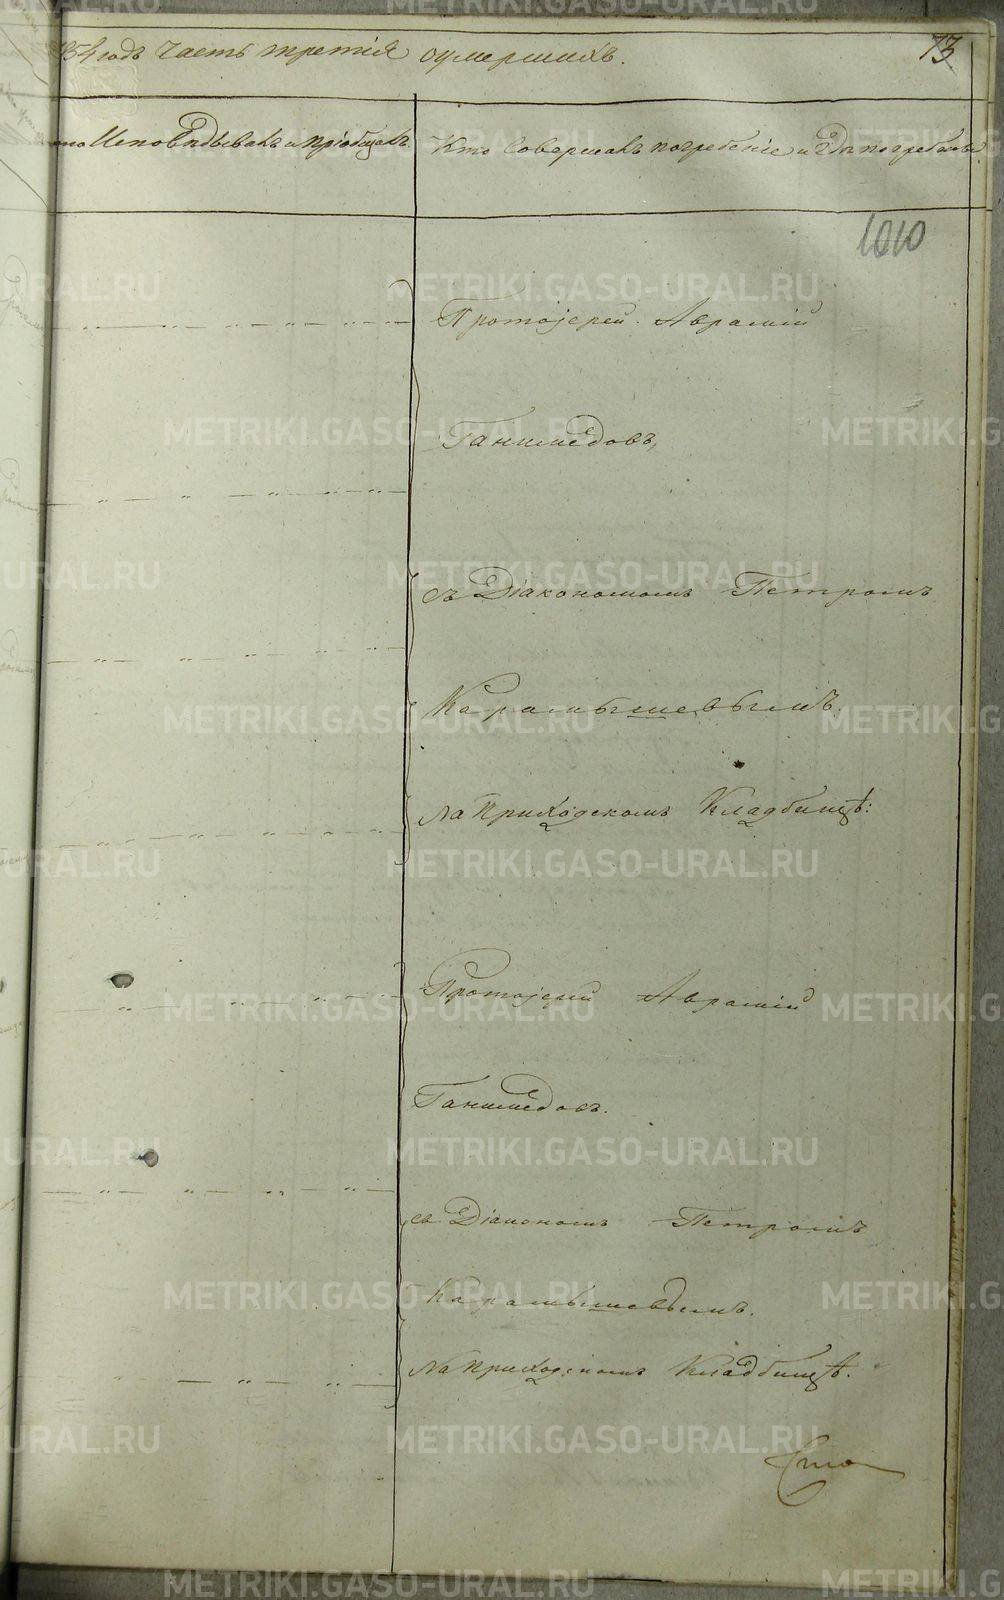 54 годъ Часть третія оумершихъ.
73
то Исповѣдывалъ и пріобщалъ.
Кто Совершалъ погребеніе и Гдѣ погребены.
1010
Протоіерей Аврамій
Ганимедовъ,
съ Діакономъ Петромъ
Карамышевымъ.
На Приходскомъ Кладбищѣ:
Протоіерей Аврамій
Ганимедовъ.
съ Діакономъ Петромъ
Карамышевымъ.
На Приходскомъ Кладбищѣ.
METRIKI.GASO-URAL.RU